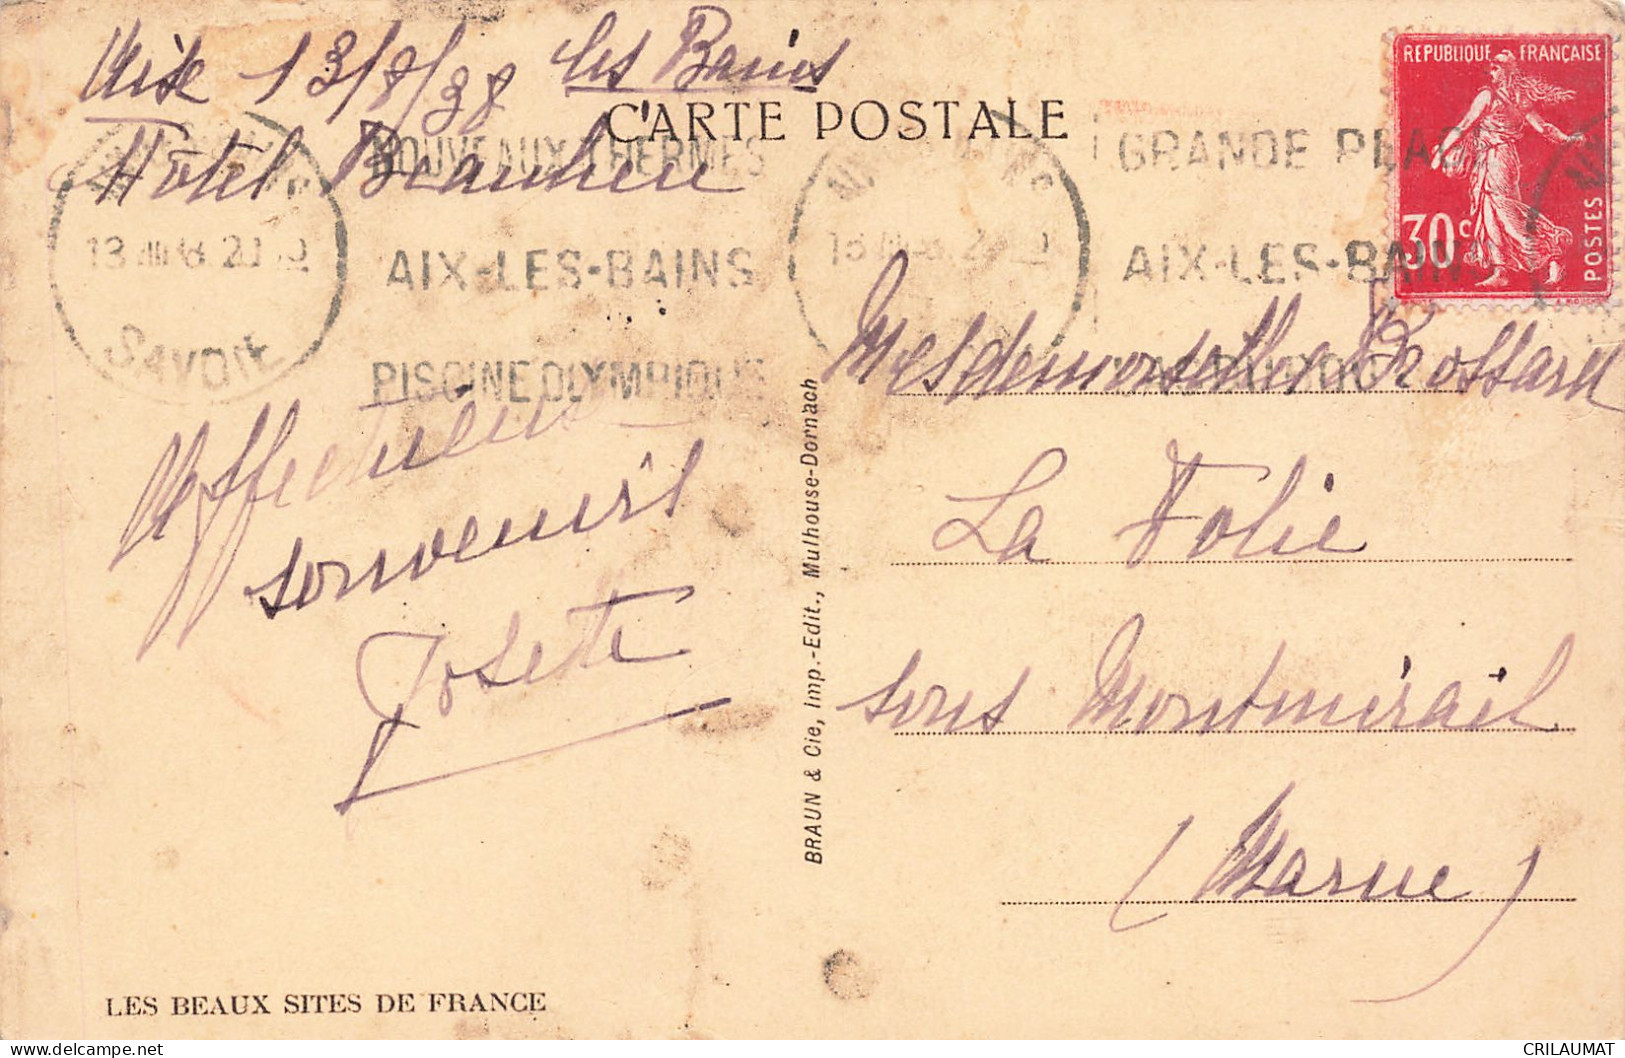 Aix 13/8/38 les Bains
Hôtel Beaulieu
CARTE POSTALE
NOUVEAUX THERMES
AIX-LES-BAINS
PISCINE OLYMPIQUE
SAVOIE
GRANDE PLAGE
AIX-LES-BAINS
REPUBLIQUE FRANÇAISE
30c
POSTES
Affectueux
souvenirs
Josette
Mesdemoiselles Rossard
La Folie
sous Montmirail
(Marne)
BRAUN & Cie, Imp.-Edit., Mulhouse-Dornach
LES BEAUX SITES DE FRANCE
CRILAUMAT